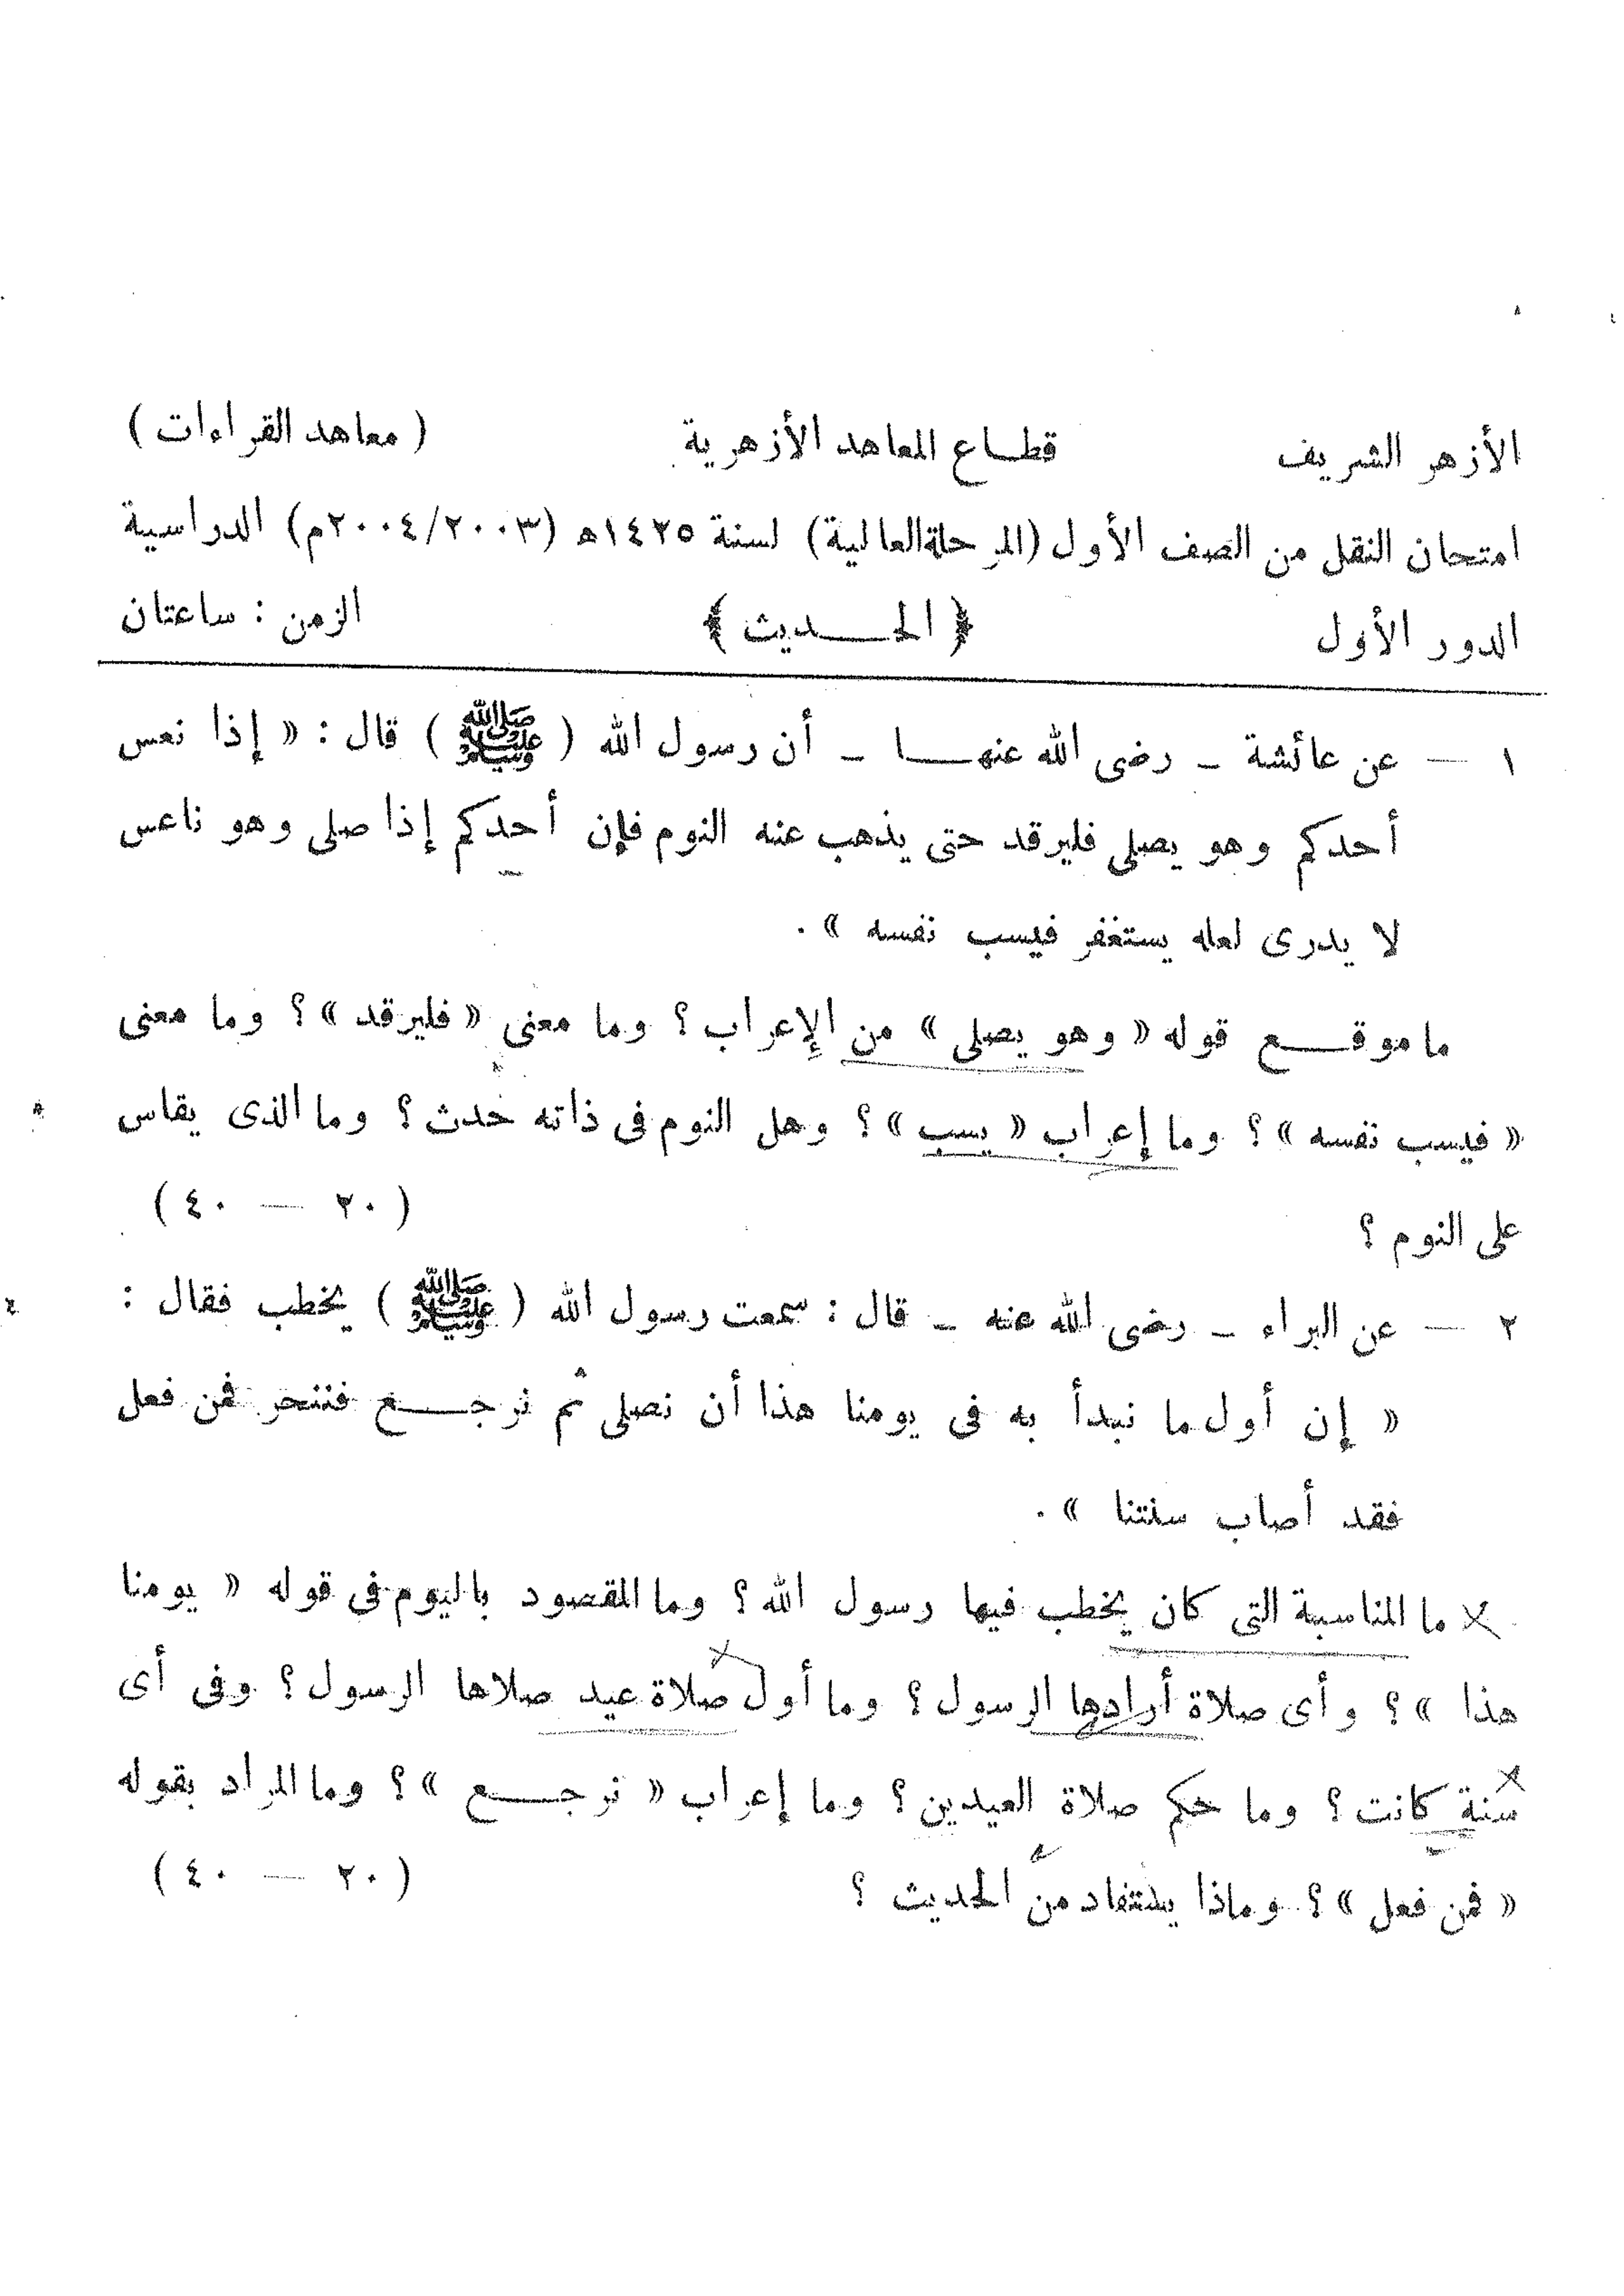 الأزهر الشريف قطاع المعاهد الأزهرية ( معاهد القراءات )
امتحان النقل من الصف الأول (المرحلة العالية) لسنة ١٤٢٥ه (٢٠٠٤/٢٠٠٣م) الدراسية
الدور الأول ﴿ الحديث ﴾ الزمن : ساعتان
١ — عن عائشة – رضى الله عنها – أن رسول الله ( ﷺ ) قال : « إذا نعس
أحدكم وهو يصلى فليرقد حتى يذهب عنه النوم فإن أحدكم إذا صلى وهو ناعس
لا يدرى لعله يستغفر فيسب نفسه » .
ما موقع قوله « وهو يصلى » من الإعراب ؟ وما معنى « فليرقد » ؟ وما معنى
« فيسب نفسه » ؟ وما إعراب « يسب » ؟ وهل النوم فى ذاته حدث ؟ وما الذى يقاس
على النوم ؟ ( ٢٠ — ٤٠ )
٢ — عن البراء – رضى الله عنه – قال : سمعت رسول الله ( ﷺ ) يخطب فقال :
« إن أول ما نبدأ به فى يومنا هذا أن نصلى ثم نرجع فننحر فمن فعل
فقد أصاب سنتنا » .
ما المناسبة التى كان يخطب فيها رسول الله ؟ وما المقصود باليوم فى قوله « يومنا
هذا » ؟ وأى صلاة أرادها الرسول ؟ وما أول صلاة عيد صلاها الرسول ؟ وفى أى
سنة كانت ؟ وما حكم صلاة العيدين ؟ وما إعراب « نرجع » ؟ وما المراد بقوله
« فمن فعل » ؟ وماذا يستفاد من الحديث ؟ ( ٢٠ — ٤٠ )